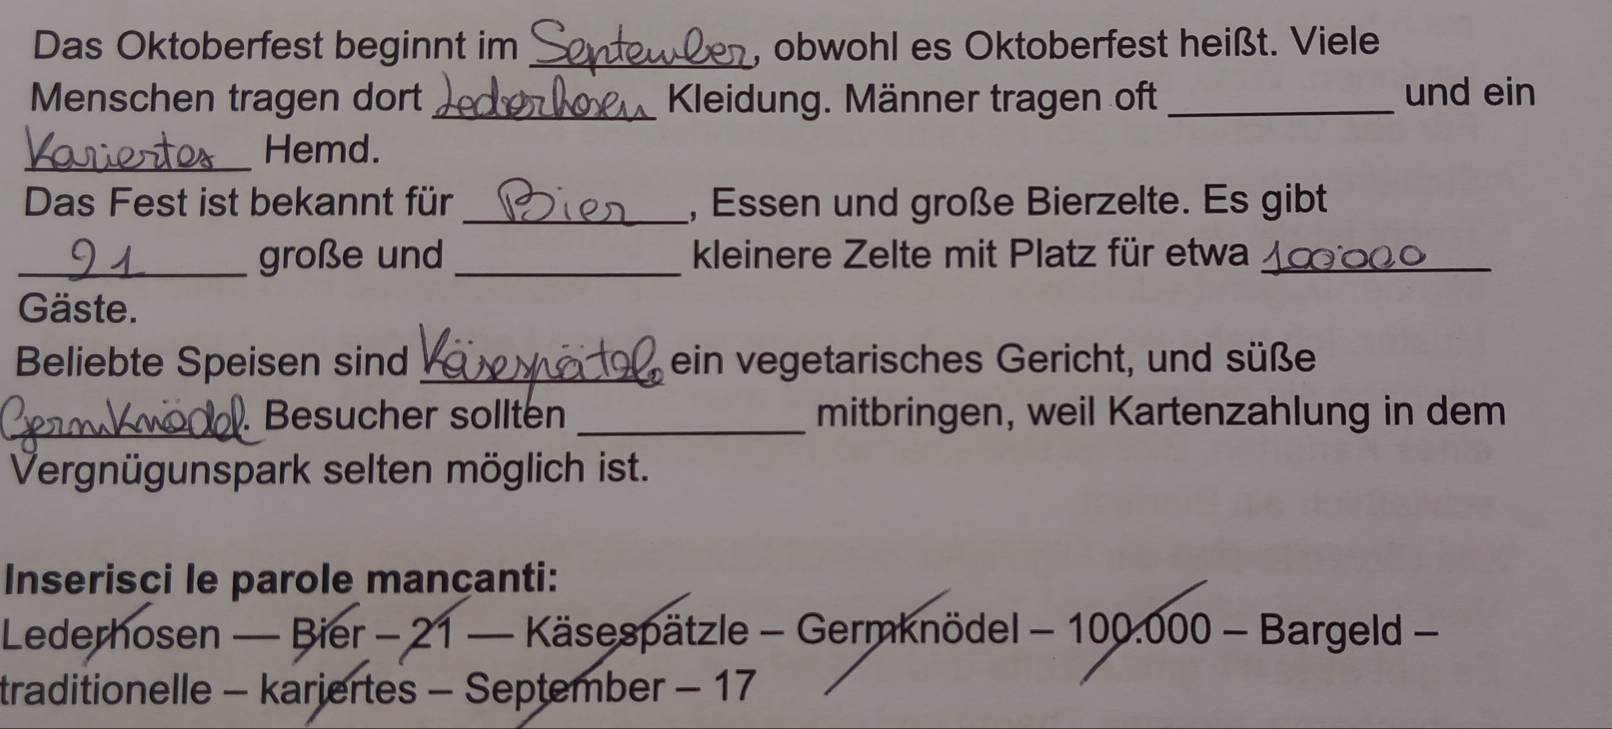 Das Oktoberfest beginnt im September, obwohl es Oktoberfest heißt. Viele
Menschen tragen dort Lederhosen Kleidung. Männer tragen oft ____________ und ein
Kariertes Hemd.
Das Fest ist bekannt für Bier, Essen und große Bierzelte. Es gibt
21 große und ____________ kleinere Zelte mit Platz für etwa 100.000
Gäste.
Beliebte Speisen sind Käsespätzle ein vegetarisches Gericht, und süße
Germknödel. Besucher sollten ____________ mitbringen, weil Kartenzahlung in dem
Vergnügunspark selten möglich ist.
Inserisci le parole mancanti:
Lederhosen — Bier – 21 — Käsespätzle – Germknödel – 100.000 – Bargeld –
traditionelle – kariertes – September – 17